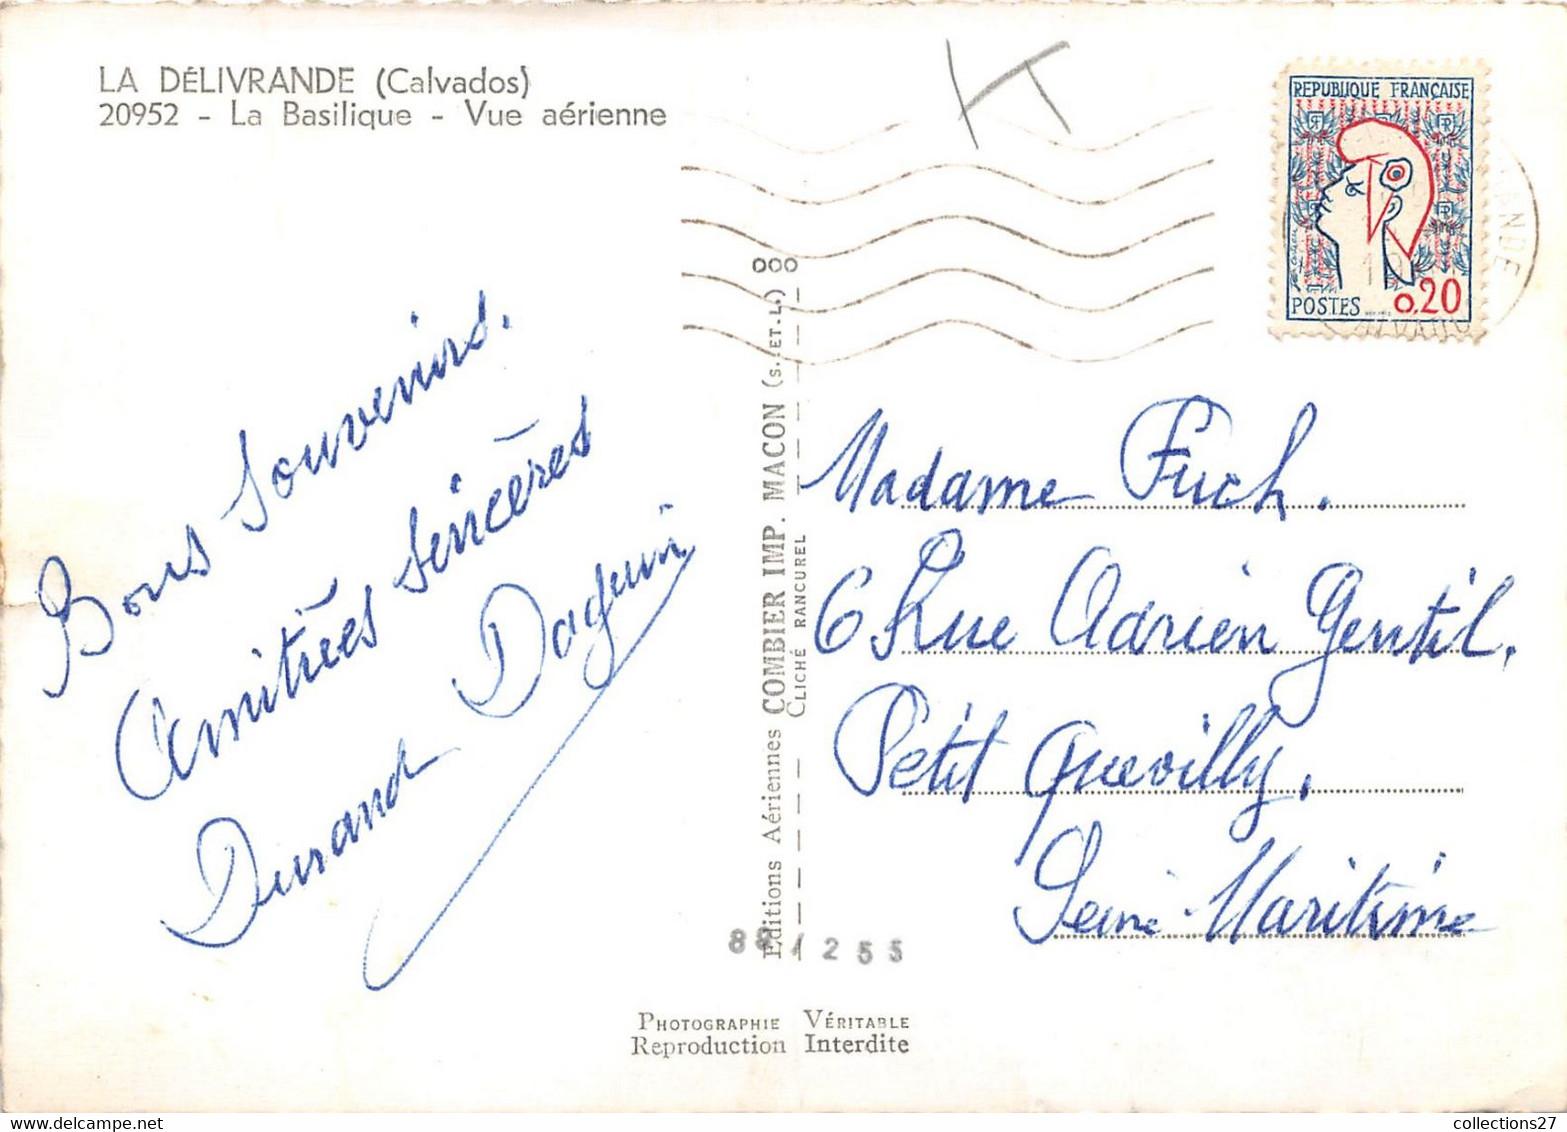 LA DÉLIVRANDE (Calvados)
20952 - La Basilique - Vue aérienne
RÉPUBLIQUE FRANÇAISE
POSTES 0,20
Bons Souvenirs.
Amitiées sincères
Durand Daguin
Editions Aériennes COMBIER IMP. MACON (S.-ET-L.) OOO
CLICHÉ RANCUREL
Madame Fuch.
6 Rue Adrien Gentil.
Petit Quevilly.
Seine-Maritime
255
PHOTOGRAPHIE VÉRITABLE
Reproduction Interdite
collections27